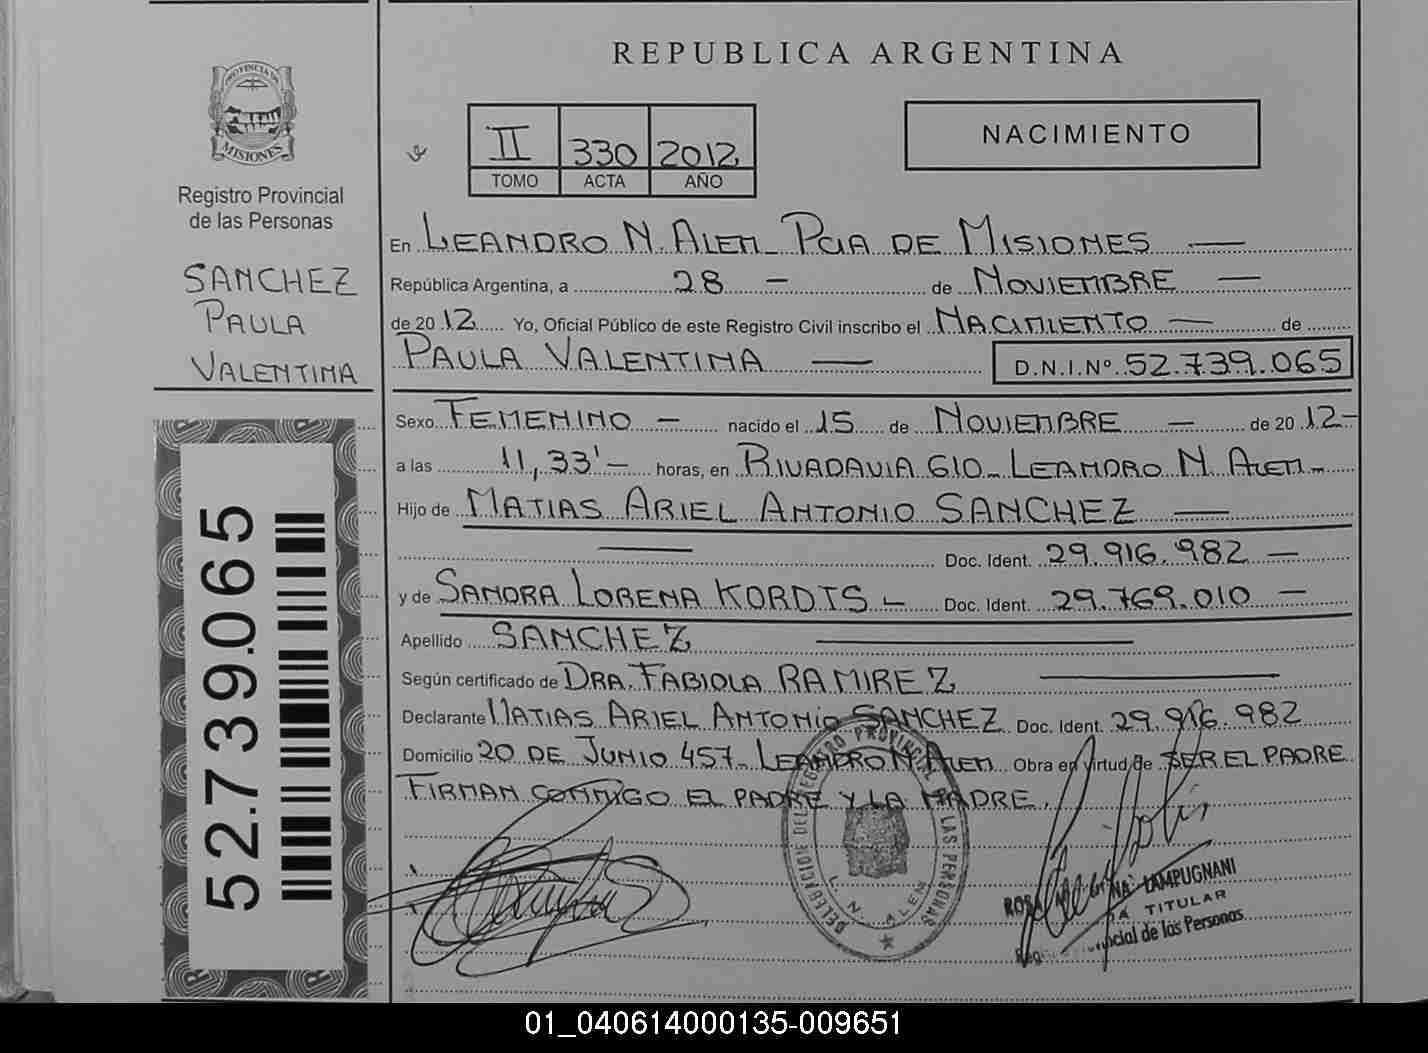 REPUBLICA ARGENTINA
PROVINCIA DE
MISIONES
Registro Provincial
de las Personas
SANCHEZ
PAULA
VALENTINA
52.739.065
II 330 2012
TOMO ACTA AÑO
NACIMIENTO
En LEANDRO N. ALEM_ PCIA DE MISIONES —
República Argentina, a 28 — de NOVIEMBRE —
de 2012 Yo, Oficial Público de este Registro Civil inscribo el NACIMIENTO — de
PAULA VALENTINA — D.N.I.Nº 52.739.065
Sexo FEMENINO — nacido el 15 de NOVIEMBRE — de 2012-
a las 11,33'— horas, en RIVADAVIA 610_ LEANDRO N. ALEM_
Hijo de MATIAS ARIEL ANTONIO SANCHEZ —
— Doc. Ident. 29.916.982 —
y de SANDRA LORENA KORDIS — Doc. Ident. 29.769.010 —
Apellido SANCHEZ —
Según certificado de DRA. FABIOLA RAMIREZ —
Declarante MATIAS ARIEL ANTONIO SANCHEZ Doc. Ident. 29.916.982
Domicilio 20 DE JUNIO 457_ LEANDRO N ALEM Obra en virtud de SER EL PADRE
FIRMAN CONMIGO EL PADRE Y LA MADRE.
DELEGACION DEL REGISTRO PROVINCIAL DE LAS PERSONAS
L. N. ALEM
LAMPUGNANI
TITULAR
de las Personas
01_040614000135-009651